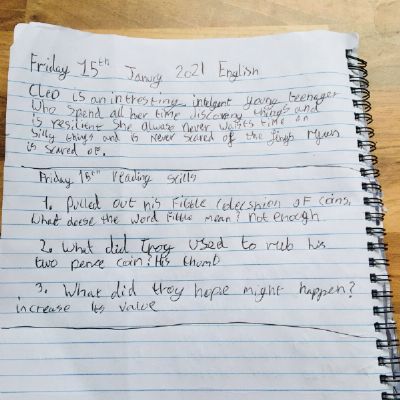 Friday 15th Janury 2021 English
Cleo is an intresting intelgent young teenager
who spend all her time discovery things and
is resilient she alwase never waists time on
silly things and is never scared of the
is scared of.
Friday 15th reading skills
1. Pulled out his fible collecshion of coins,
What doese the word fible mean? not enough
2. What did troy used to rub his
two pence coin? His thumb
3. What did troy hope might happen?
increase its value